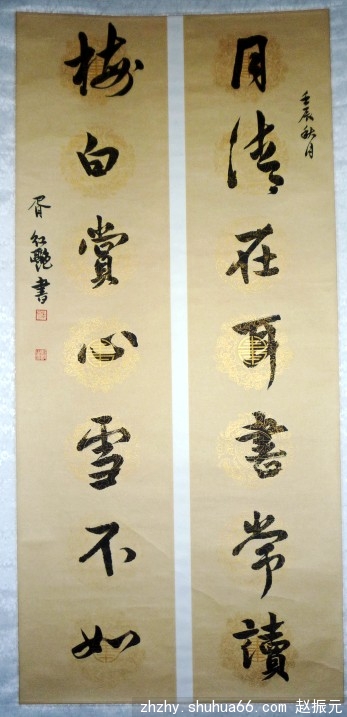 壬辰秋月
月清在耳書常讀
梅白賞心雪不如
胥红艷書
zhzhy.shuhua66.com 赵振元